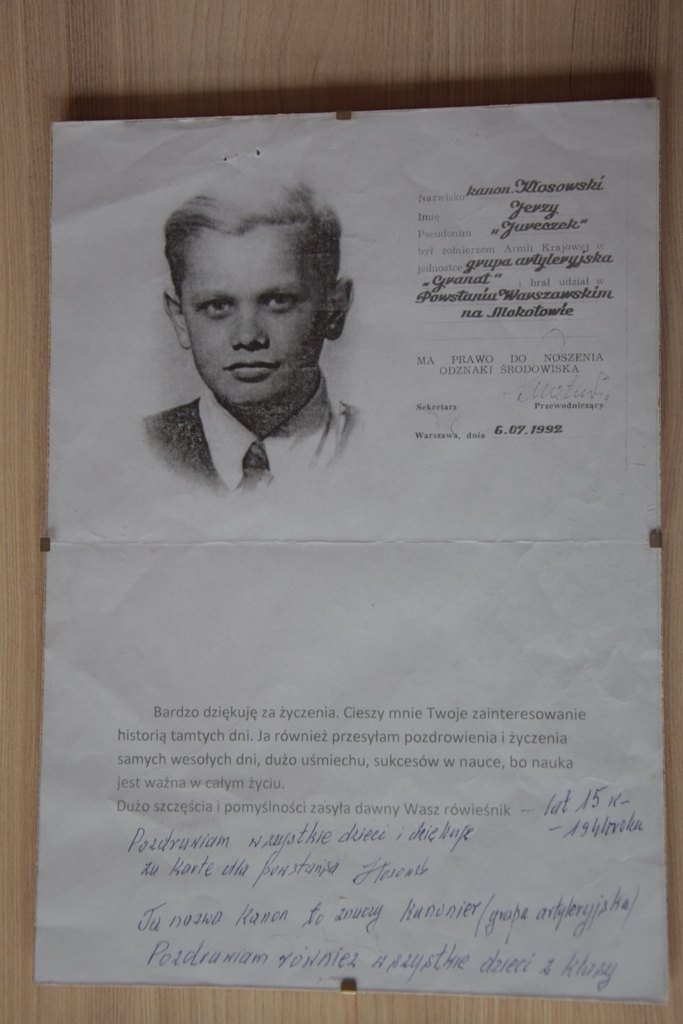 Nazwisko kanon. Kłosowski
Imię Jerzy
Pseudonim „Jureczek"
był żołnierzem Armii Krajowej w
jednostce grupa artyleryjska
„Granat" i brał udział w
Powstaniu Warszawskim
na Mokotowie
MA PRAWO DO NOSZENIA
ODZNAKI ŚRODOWISKA
Sekretarz Przewodniczący
Warszawa, dnia 6.07.1992
Bardzo dziękuję za życzenia. Cieszy mnie Twoje zainteresowanie
historią tamtych dni. Ja również przesyłam pozdrowienia i życzenia
samych wesołych dni, dużo uśmiechu, sukcesów w nauce, bo nauka
jest ważna w całym życiu.
Dużo szczęścia i pomyślności zasyła dawny Wasz rówieśnik – lat 15
- 1944 roku
Pozdrawiam wszystkie dzieci i dziękuję
za kartę dla powstańca
Ta nazwa kanon to znaczy kanonier (grupa artyleryjska)
Pozdrawiam również wszystkie dzieci z klasy